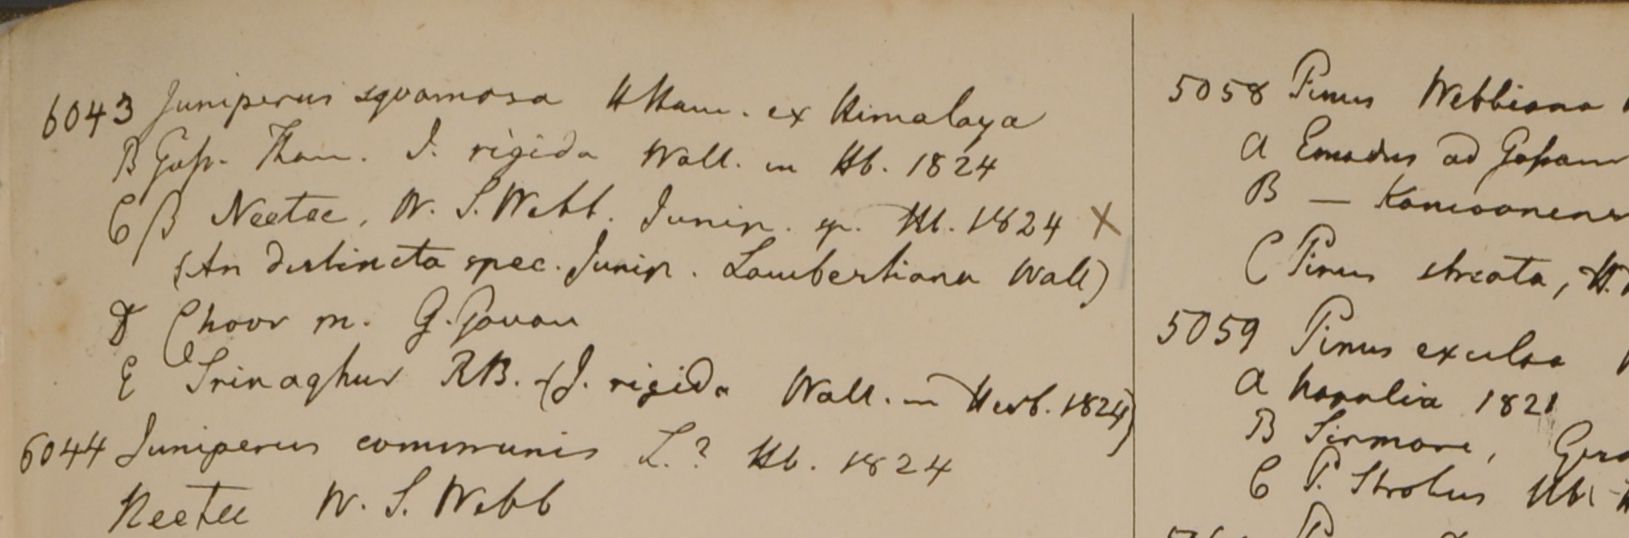 6043 Juniperus squamosa HHam. ex Himalaya
B Gosp. Than. J. rigida Wall. in Hb. 1824
C β Neetee, W. S. Webb. Junip. sp. Hb. 1824 X
(An distincta spec. Junip. Lambertiana Wall)
D Choor m. G. Govan
E Srinaghur RB. (J. rigida Wall. in Herb. 1824)
6044 Juniperus communis L.? Hb. 1824
Neetee W. S. Webb
5058 Pinus Webbiana
A Emodus ad Gosain
B — Kamoonens
C Pinus striata, H.
5059 Pinus excelsa
A Napalia 1821
B Sirmore,
C P. Strobus Hb.